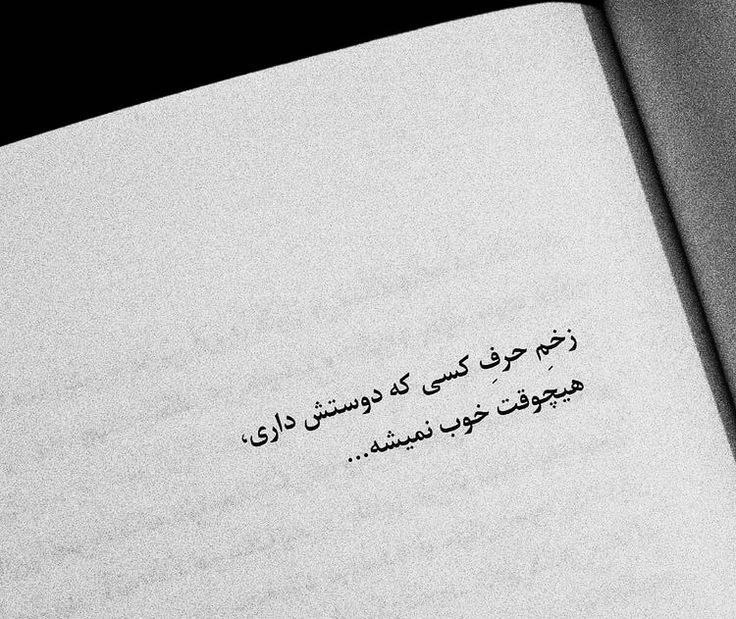 زخمِ حرفِ کسی که دوستش داری،
هیچوقت خوب نمیشه...